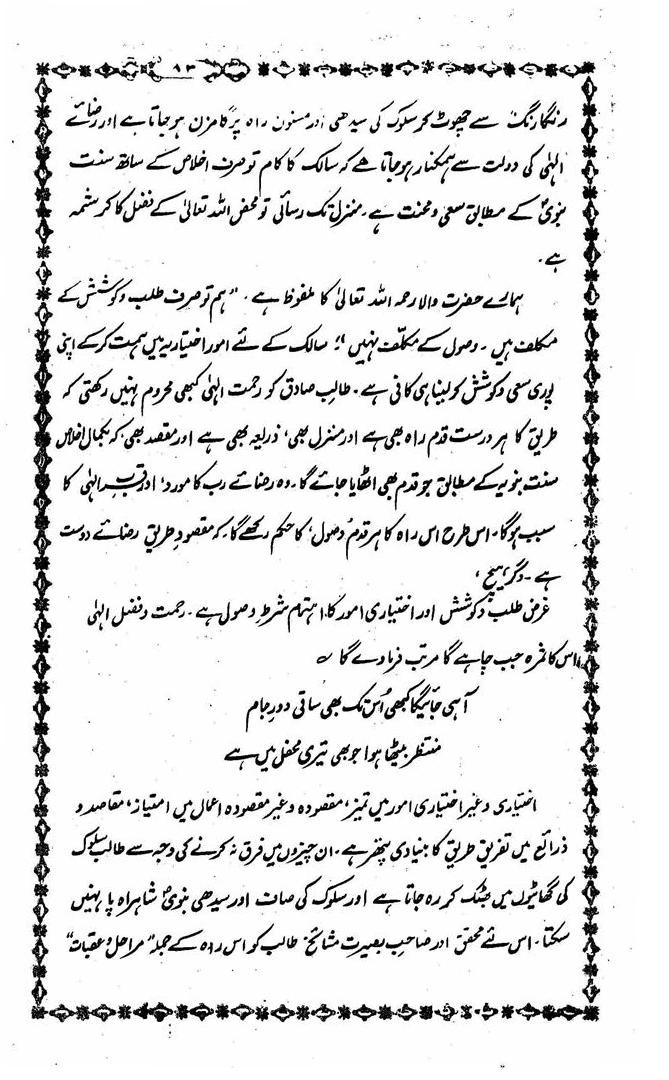 ۹۳
رنگارنگ سے چھوٹ کر سلوک کی سیدھی اور مسنون راہ پر گامزن ہوجاتا ہے اور رضائے
الہٰی کی دولت سے ہمکنار ہوجاتا ہے کہ سالک کا کام تو صرف اخلاص کے ساتھ سنت
نبویؐ کے مطابق سعی و محنت ہے۔ منزل تک رسائی تو محض اللہ تعالیٰ کے فضل کا کرشمہ
ہے۔
ہمارے حضرت والا رحمہ اللہ تعالیٰ کا ملفوظ ہے۔ "ہم تو صرف طلب و کوشش کے
مکلف ہیں۔ وصول کے مکلّف نہیں"؛ سالک کے لئے امور اختیاریہ میں ہمت کرکے اپنی
پوری سعی و کوشش کرلینا ہی کافی ہے۔ طالبِ صادق کو رحمت الہٰی کبھی محروم نہیں رکھتی کہ
طریق کا ہر درست قدم راہ بھی ہے اور منزل بھی، ذریعہ بھی ہے اور مقصد بھی، کہ بکمال اخلاص
سنت نبویہ کے مطابق جو قدم بھی اٹھایا جائے گا۔ وہ رضائے رب کا مورد، اور قرب الہٰی کا
سبب ہوگا۔ اس طرح اس راہ کا ہر قدم 'وصول' کا حکم رکھے گا۔ کہ مقصودِ طریق رضائے دوست
ہے۔ دگر ہیچ،
غرض طلب و کوشش اور اختیاری امور کا اہتمام شرطِ وصول ہے۔ رحمت و فضل الہٰی
اس کا ثمرہ جب چاہے گا مرتب فرمادے گا ؎
آہی جائیگا کبھی اُس تک بھی ساقی دورِ جام
منتظر بیٹھا ہوا جو بھی تیری محفل میں ہے
اختیاری و غیر اختیاری امور میں تمیز، مقصودہ و غیر مقصودہ اعمال میں امتیاز، مقاصد و
ذرائع میں تفریق طریق کا بنیادی پتھر ہے۔ ان چیزوں میں فرق نہ کرنے کی وجہ سے طالب سلوک
کی گھاٹیوں میں بھٹک کر رہ جاتا ہے اور سلوک کی صاف اور سیدھی نبویؐ شاہراہ پا نہیں
سکتا۔ اس لئے محقق اور صاحب بصیرت مشائخ طالب کو اس راہ کے جملہ "مراحل و عقبات"